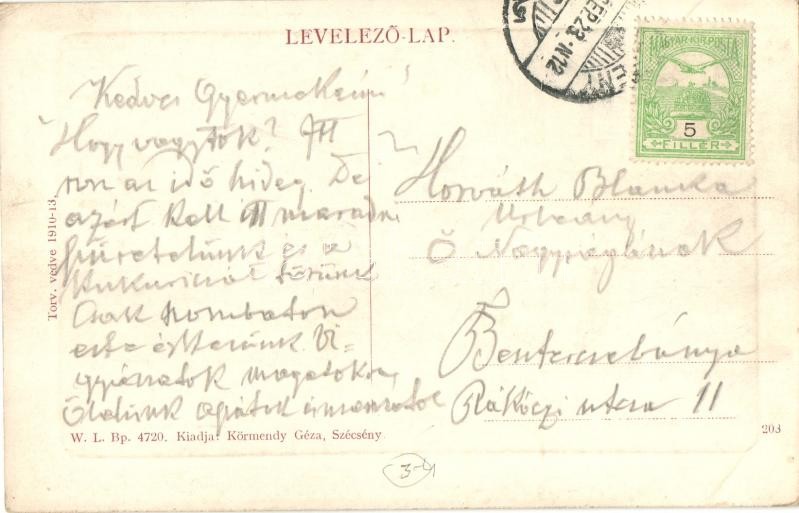 LEVELEZŐ-LAP.
SEP. 23. N12
MAGYAR KIR. POSTA
5
FILLÉR
Kedves Gyermekeim!
Hogy vagytok? Itt
van az idő hideg. De
azért kell itt maradn
szüretelünk és a
kukuricát törünk
Csak szombaton
este érkezünk. Vi-
gyázzatok magatokra,
Ölelünk
Horváth Blanka
Urleány
Ő Nagyságának
Besztercebánya
Rákóczi utca 11
Torv. vedve 1910-13.
W. L. Bp. 4720. Kiadja: Körmendy Géza, Szécsény
203
3-4